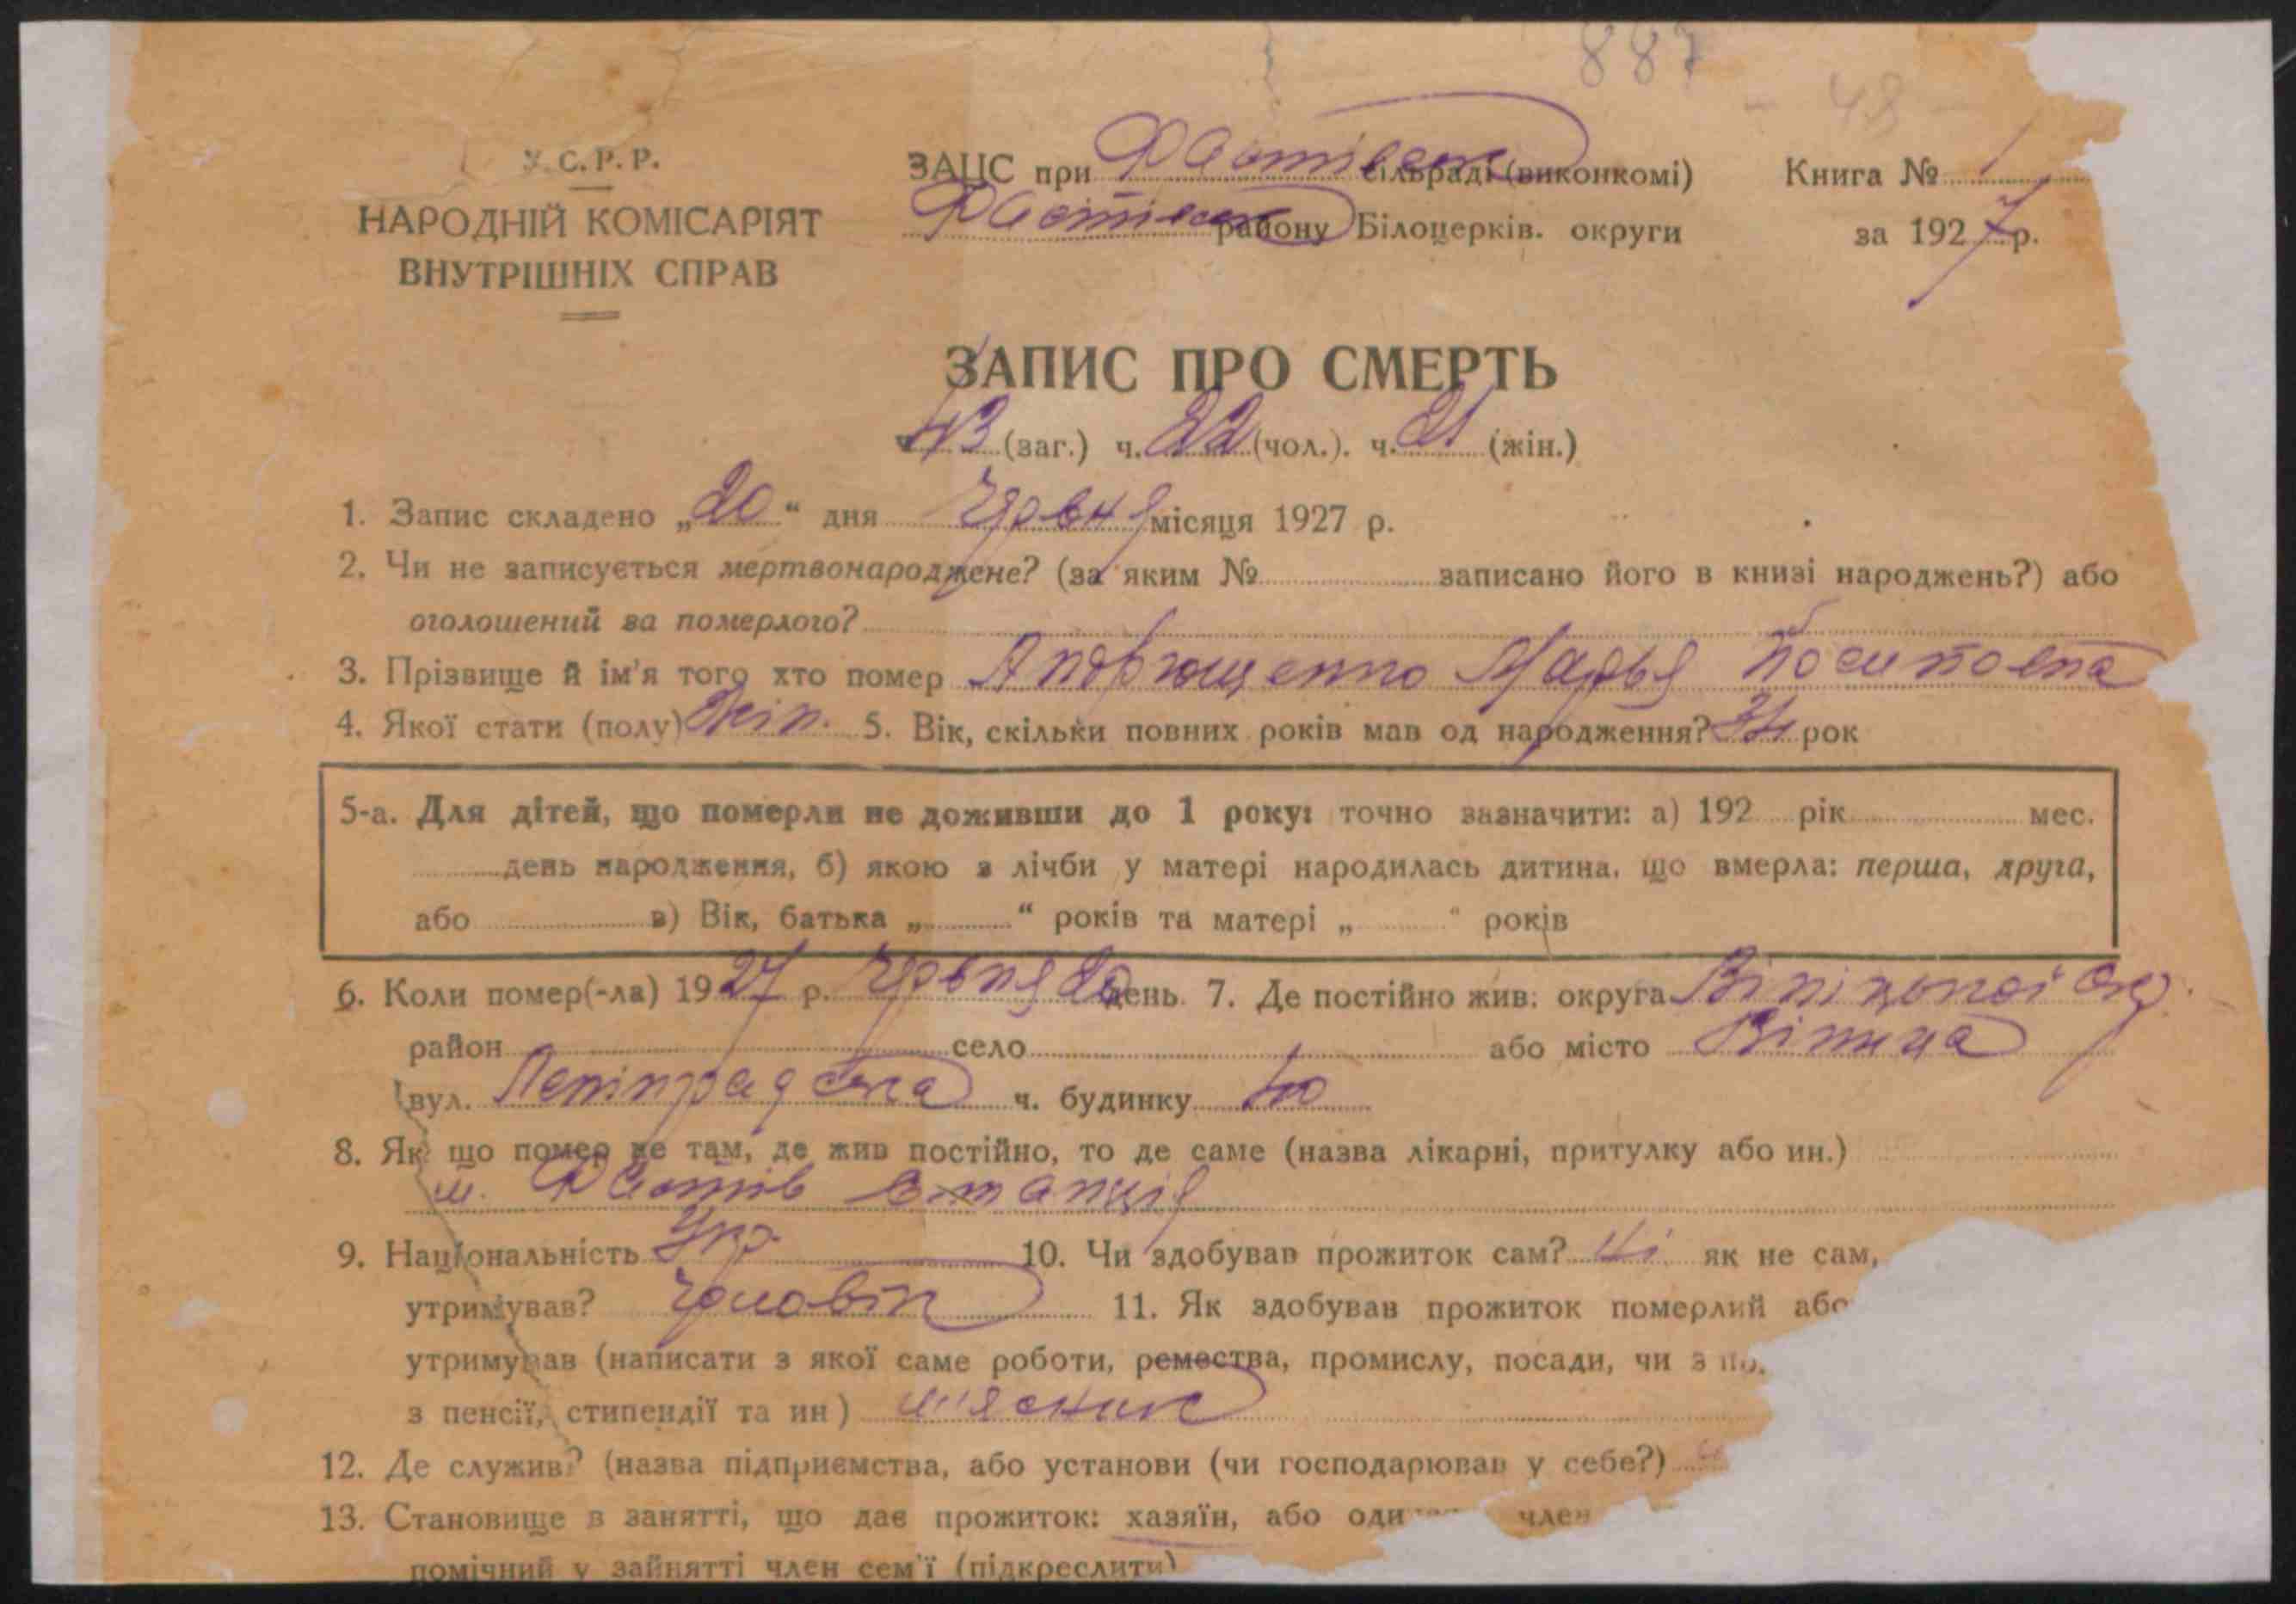 887
- 48 -
У.С.Р.Р.
НАРОДНІЙ КОМІСАРІЯТ
ВНУТРІШНІХ СПРАВ
ЗАЦС при Фастівськ сільраді (виконкомі)
Фастівськ району Білоцерків. округи
Книга № 1
за 1927 р.
ЗАПИС ПРО СМЕРТЬ
ч. 43 (заг.) ч. 22 (чол.). ч. 21 (жін.)
1. Запис складено „20“ дня Червня місяця 1927 р.
2. Чи не записується мертвонароджене? (за яким № записано його в книзі народжень?) або
оголошений за померлого?
3. Прізвище й ім'я того хто помер Андрющенко Марья
4. Якої стати (полу) жін. 5. Вік, скільки повних років мав од народження? рок
5-а. Для дітей, що померли не доживши до 1 року: точно зазначити: а) 192 рік мес.
день народження, б) якою з лічби у матері народилась дитина, що вмерла: перша, друга,
або в) Вік, батька „ “ років та матері „ “ років
6. Коли помер(-ла) 1927 р. Червня 20 день. 7. Де постійно жив: округа Вініцької окр.
район село або місто Вінница
(вул. Ленінградська ч. будинку 40
8. Як що помер не там, де жив постійно, то де саме (назва лікарні, притулку або ин.)
м. Фастів станція
9. Національність Укр 10. Чи здобував прожиток сам? Ні як не сам,
утримував? Чоловік 11. Як здобував прожиток померлий або
утримував (написати з якої саме роботи, ремества, промислу, посади, чи з по
з пенсії, стипендії та ин) мясник
12. Де служив? (назва підприємства, або установи (чи господарював у себе?)
13. Становище в занятті, що дає прожиток: хазяїн, або оди член
помічний у зайнятті член сем'ї (підкреслити)